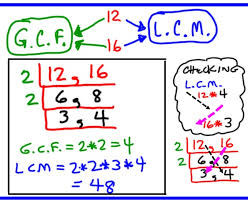 G.C.F. 12 L.C.M.
16
2 12, 16
2 6, 8
3, 4
G.C.F = 2*2 = 4
LCM = 2*2*3*4
= 48
CHECKING
L.C.M.
12*4
16*3
2 12, 16
2 6, 8
3, 4